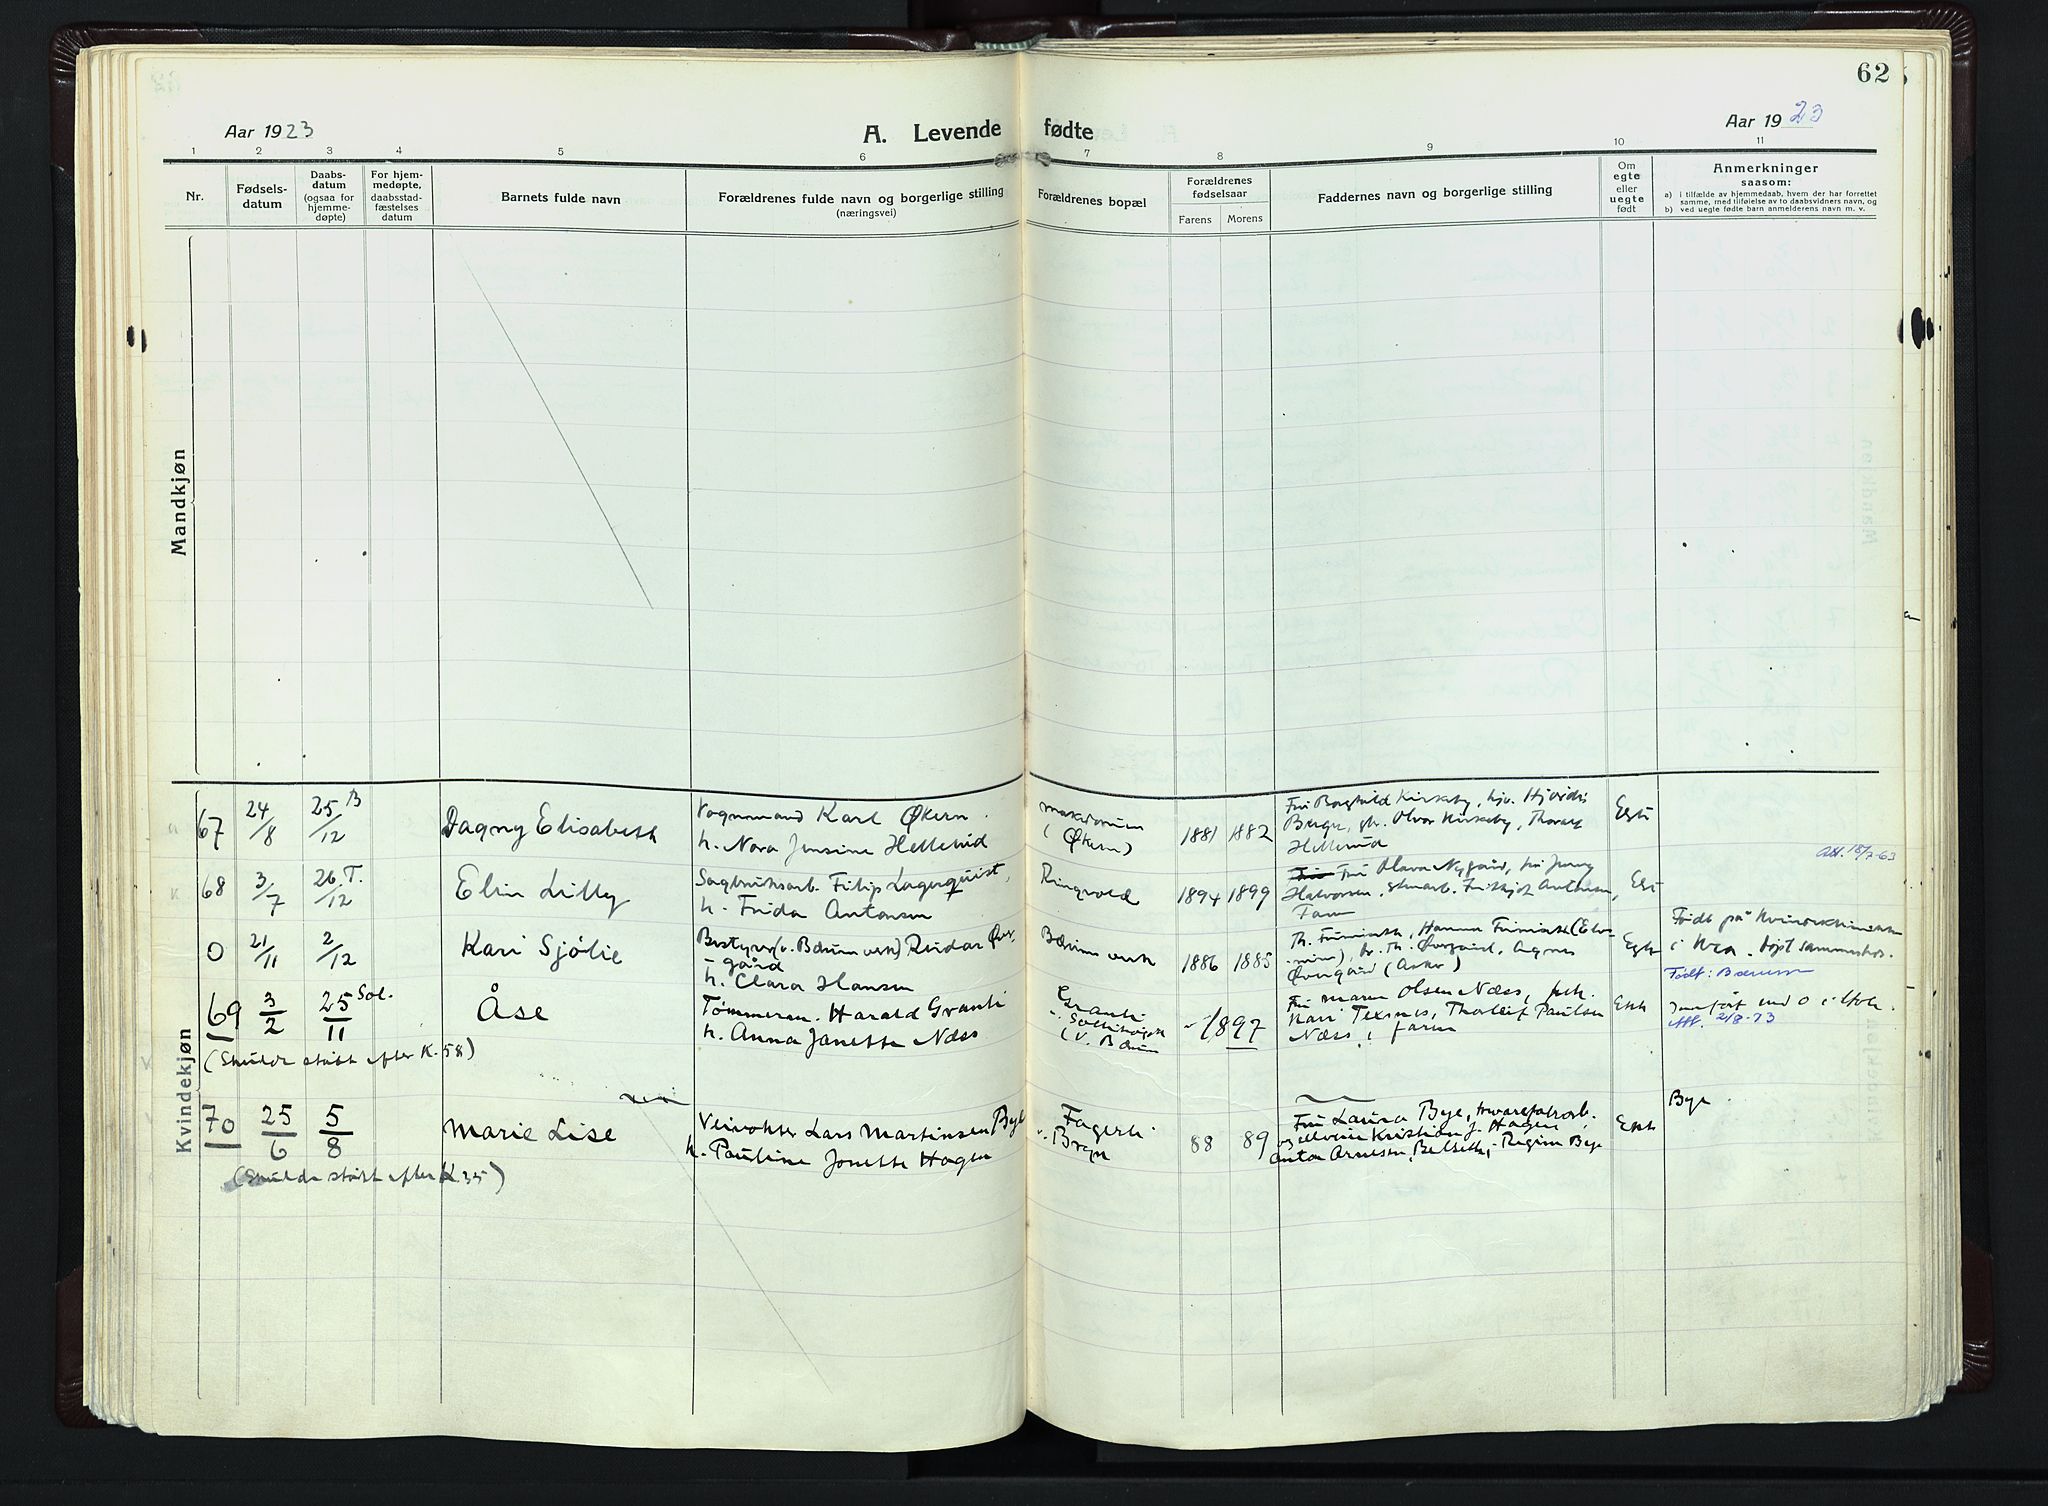 62
Aar 1923
A. Levende fødte
Aar 1923
1 2 3 4 5 6 7 8 9 10 11
Nr.
Fødsels-
datum
Daabs-
datum
(ogsaa for
hjemme-
døpte)
For hjem-
medøpte,
daabsstad-
fæstelses
datum
Barnets fulde navn
Forældrenes fulde navn og borgerlige stilling
(næringsvei)
Forældrenes bopæl
Forældrenes
fødselsaar
Farens Morens
Faddernes navn og borgerlige stilling
Om
egte
eller
uegte
født
Anmerkninger
saasom:
a) i tilfælde av hjemmedaab, hvem der har forrettet
samme, med tilføielse av to daabsvidners navn, og
b) ved uegte fødte barn anmelderens navn m. v.
Mandkjøn
Kvindekjøn
67 24/8 25/12 B Dagny Elisabeth
Vognmand Karl Økern
h. Nora Jensine Hellerud
(Økern)
1881 1882
Fru Borghild Kirkeby, Hjørdis
Olvar Kirkeby, Thorvald
Hellerud
Egte
68 3/7 26/12 T. Elin Lilly
Sagbruksarb. Filip Lagerquist,
h. Frida Antonsen
Ringvold
1894 1899
Fru Olava Nygård, fru Jenny
Halvorsen, Frithjof Antonsen,
Faren
Egte
0 21/11 2/12 Kari Sjølie
Bestyrer (v. Bærum verk) Reidar Øver-
gård
h. Clara Hansen
Bærum verk
1886 1885
Th. Øvergård, Agnes
Øvergård (Asker)
Egte
Født på Kvindeklinikken
i Kra. Døpt sammesteds.
Født: Bærum
69 3/2 25/11 Sol. Åse
Tømmerm. Harald Granli
h. Anna Janette Næss
Granli
Sollihøgda
(V. Bærum
1897
Fru Maren Olsen Næss, frk.
Kari Texnes, Thorleif Paulsen
Næss, faren
Egte
Innført med 0
2/8-73
(Skulde stått efter K. 58)
70 25/6 5/8 Marie Lise
Veivokter Lars Martinsen Bye
h. Pauline Jonette Hagen
Fagerli
v. Bryn
88 89
Fru Laura Bye,
Kristian J. Hagen,
Anton Arnesen, Belset, Regine Bye
Egte
Bye
(Skulde stått efter K 35)